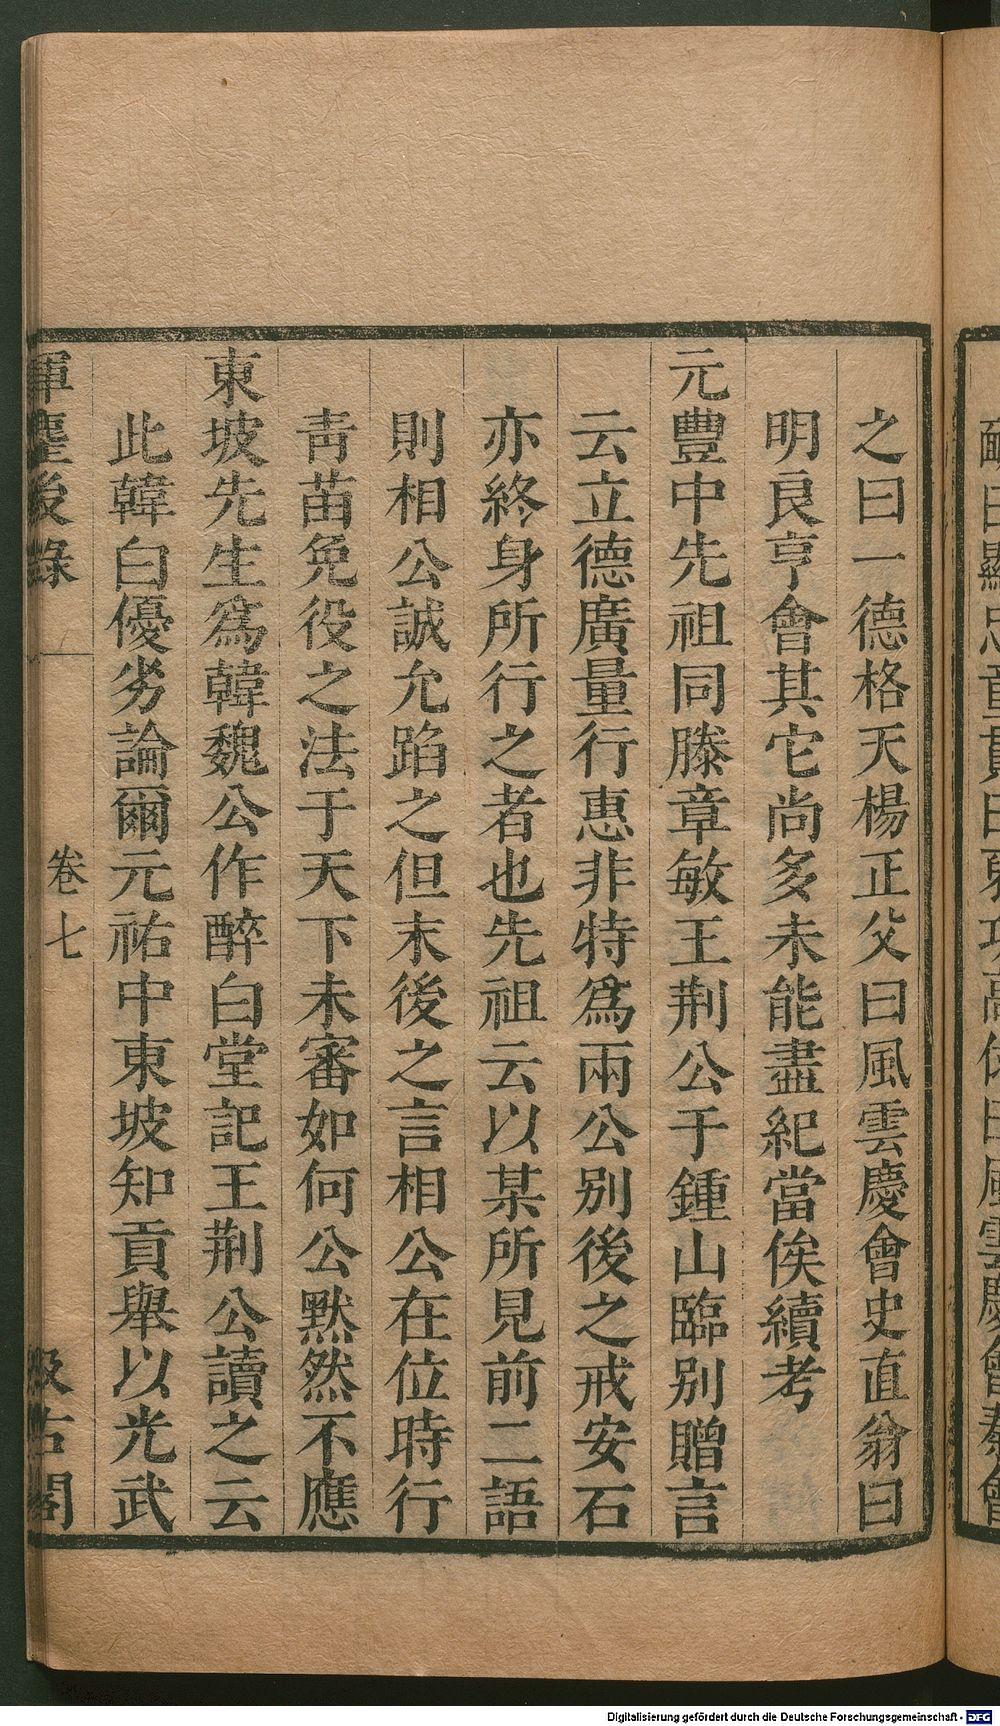 之曰一德格天楊正父曰風雲慶會史直翁曰
明良亨會其它尚多未能盡紀當俟續考
元豐中先祖同滕章敏王荆公于鍾山臨别贈言
云立德廣量行惠非特爲兩公别後之戒安石
亦終身所行之者也先祖云以某所見前二語
則相公誠允蹈之但末後之言相公在位時行
靑苗免役之法于天下未審如何公默然不應
東坡先生爲韓魏公作醉白堂記王荆公讀之云
此韓白優劣論爾元祐中東坡知貢舉以光武
揮麈後錄
卷七
汲古閣
Digitalisierung gefördert durch die Deutsche Forschungsgemeinschaft - DFG